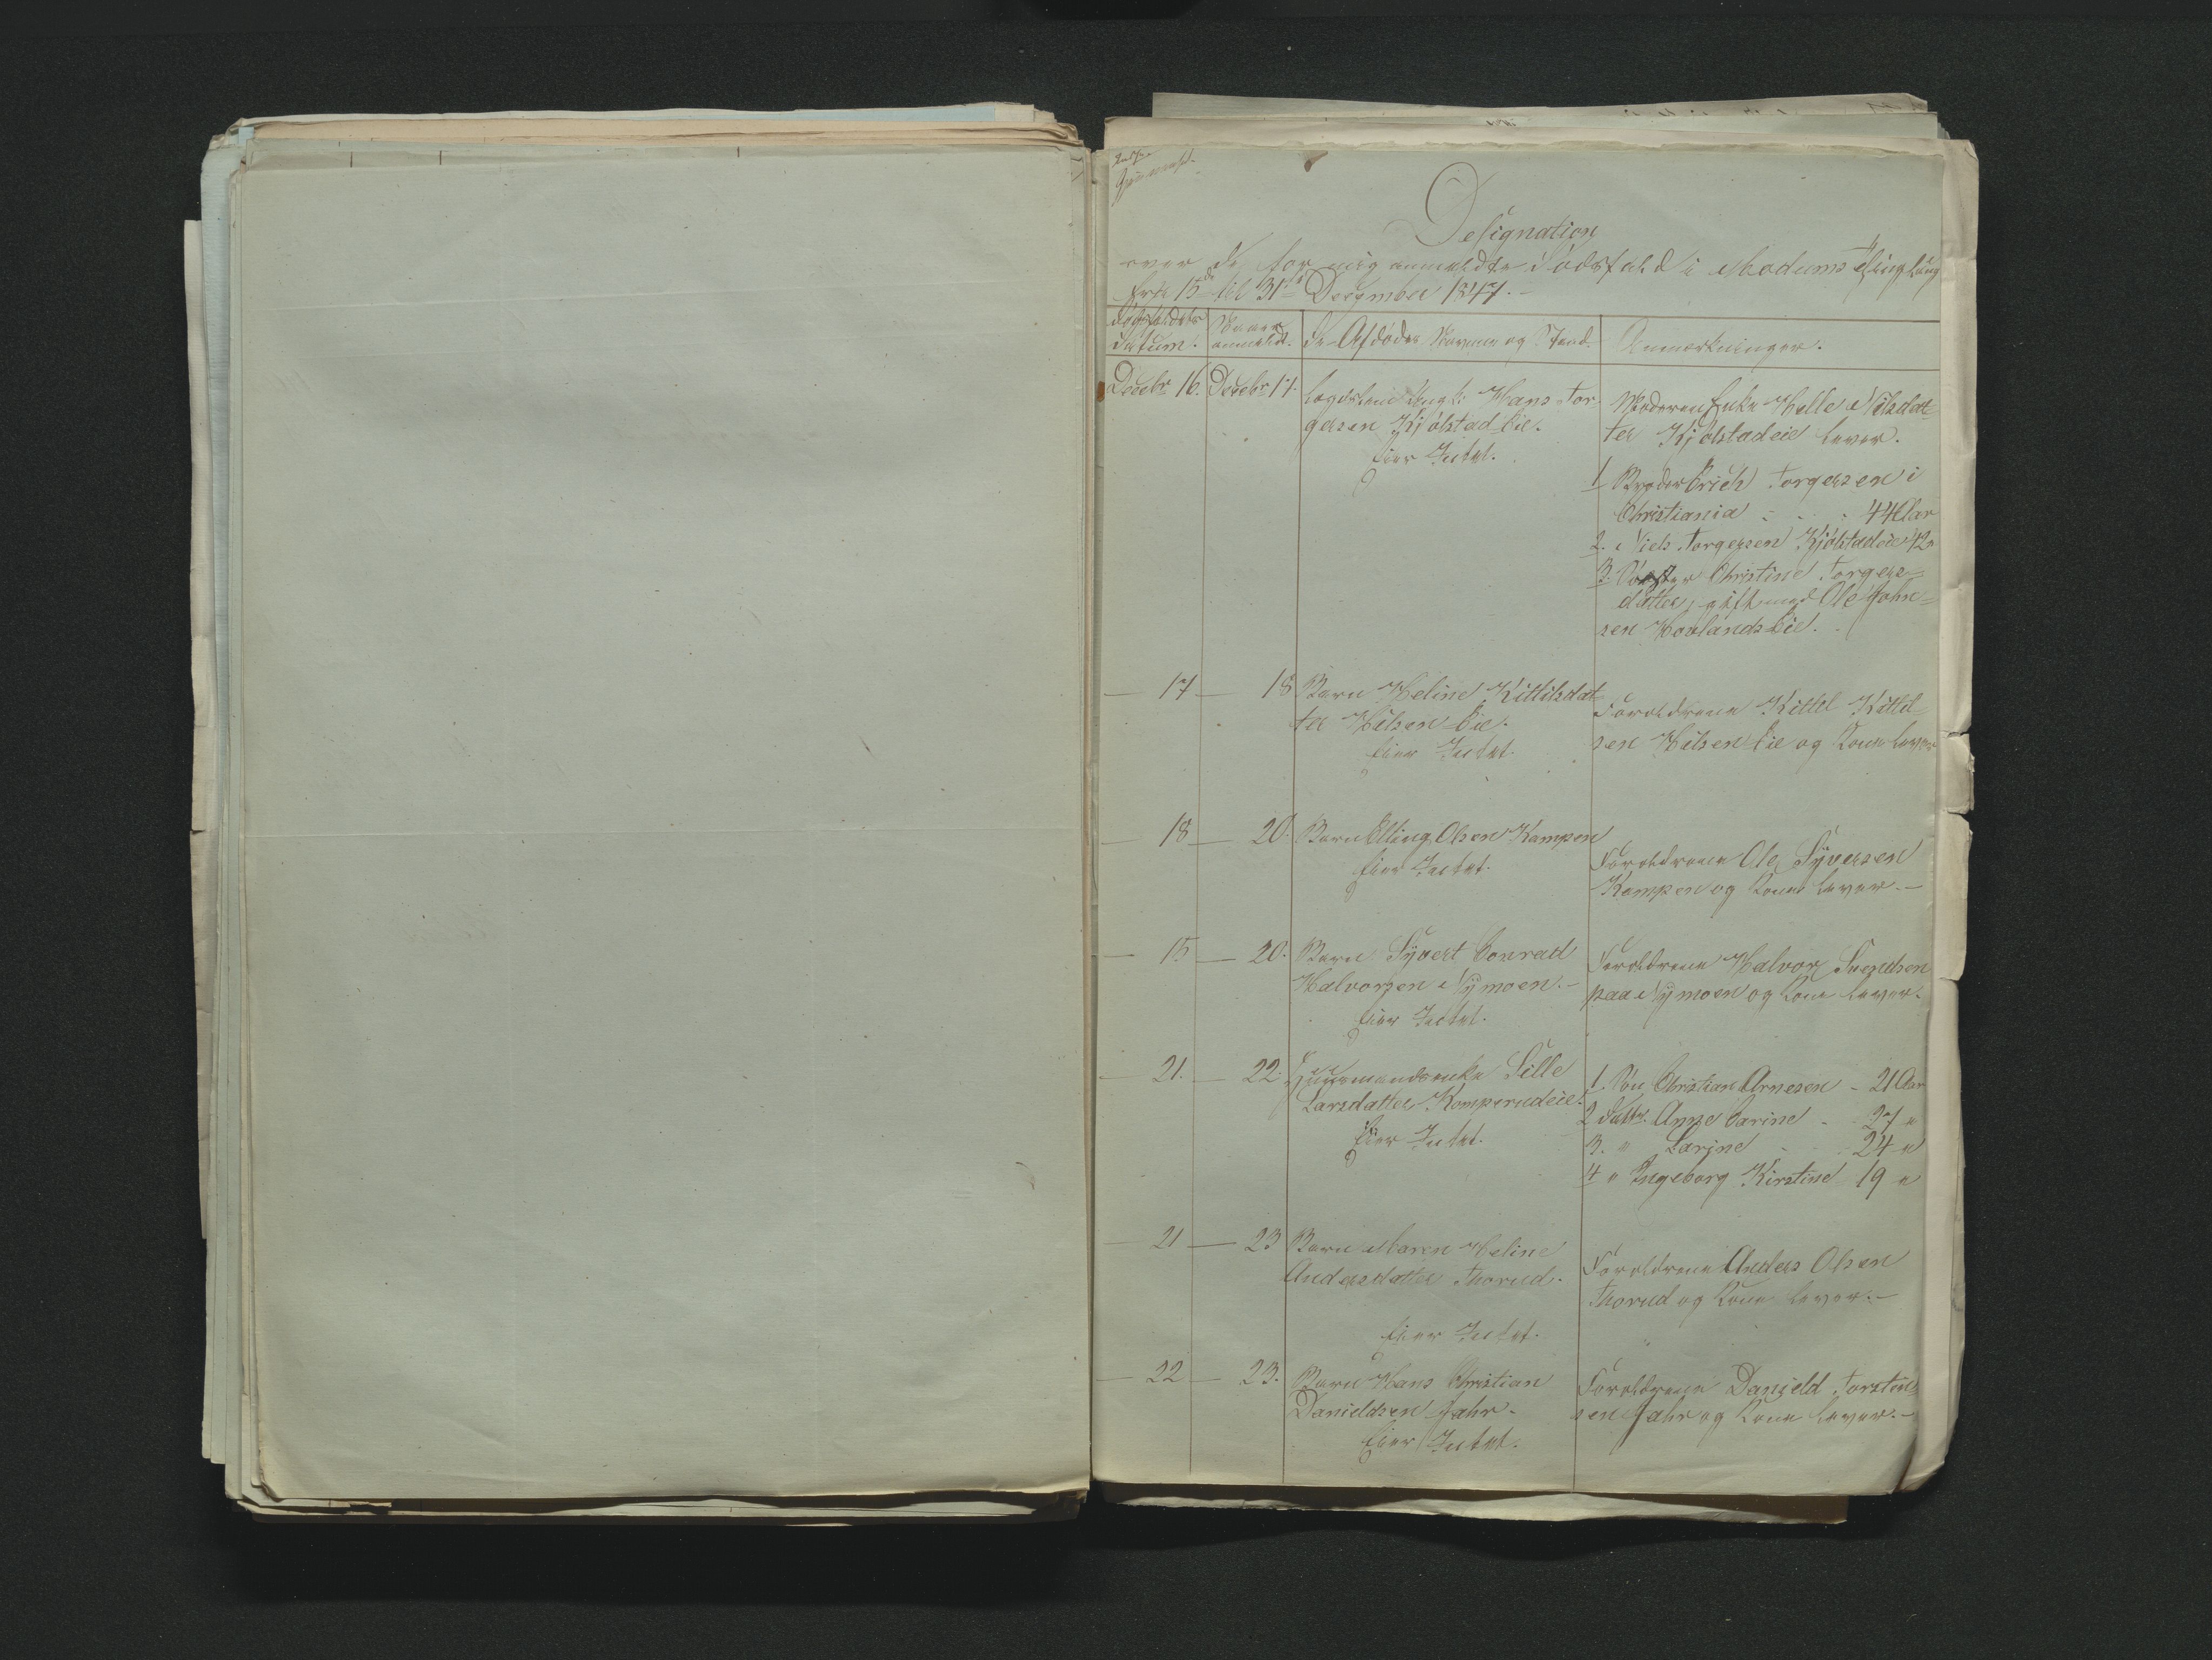 Designation
over de for mig anmeldte Dödsfald i Modums Thinglaug
fra 15de til 31te December 1847.-
Dödsfaldets Datum.
Naar anmeldt.
De Afdödes Navne og Stand.
Anmærkninger.
Decebr 16. Decebr 17.
Lægdslem Ungk: Hans Tor-
gersen Kjölstad Eie.
Eier Intet.
Moderen Enke Helle Nilsdat-
ter Kjölstadeie lever.
1 Broder Erich Torgersen i
Christiania - - - 44 Aar
2. " Niels Torgersen Kjölstadeie 42 "
3. Söster Christine Torgers-
datter, gift med Ole John-
sen Hovlands Eie.
— 17 — 18
Barn Heline Kittilsdat
ter Hilsen Eie.
Eier Intet.
Forældrene Kittel Kittel
sen Hilsen Eie og Kone lever
18 — 20.
Barn Elling Olsen Kampen
Eier Intet.
Forældrene Ole Syversen
Kampen og Kone lever.—
— 15 — 20.
Barn Syvert Conrad
Halvorsen Nymoen.-
Eier Intet.
Forældrene Halvor Svendsen
paa Nymoen og Kone lever.
— 21. — 22.
Huusmandsenke Sille
Larsdatter Komperudeie.
Eier Intet.
1. Sön Christian Arnesen - 21 Aar
2 Datr. Anne Carine - - 27 "
3. " Larine - - 24 "
4 " Ingeborg Kirstine 19 "
— 21 — 23
Barn Maren Heline
Andersdatter Thorud.
Eier Intet.
Forældrene Anders Olsen
Thorud og Kone lever.—
— 22 — 23.
Barn Hans Christian
Danieldsen Jahr.
Eier Intet.
Forældrene Danield Torsten
sen Jahr og Kone lever.—